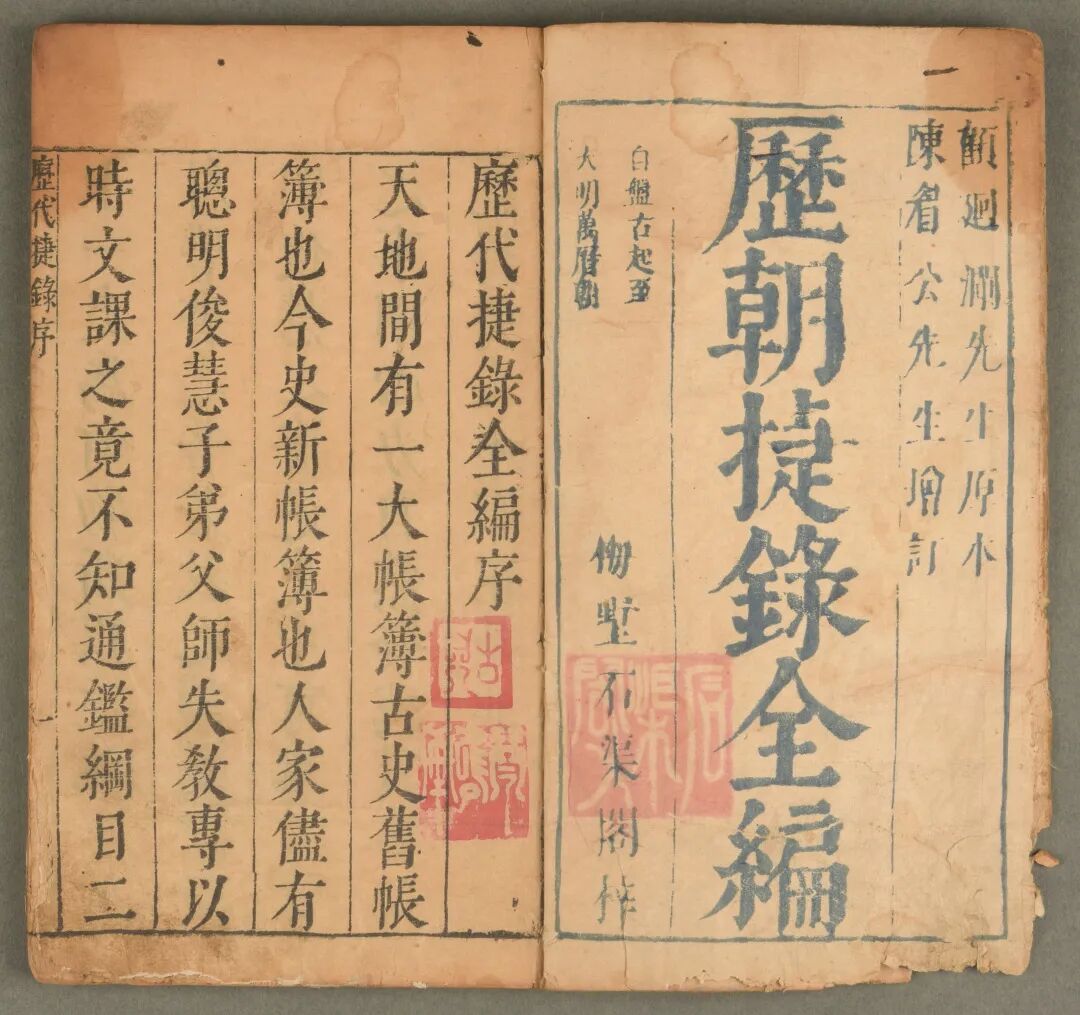 顧迴瀾先生原本
陳眉公先生增訂
歷朝捷錄全編
自盤古起至
大明萬曆朝
石渠閣梓
歷代捷錄全編序
天地間有一大帳簿古史舊帳
簿也今史新帳簿也人家儘有
聰明俊慧子弟父師失教專以
時文課之竟不知通鑑綱目二
歷代捷錄序
一